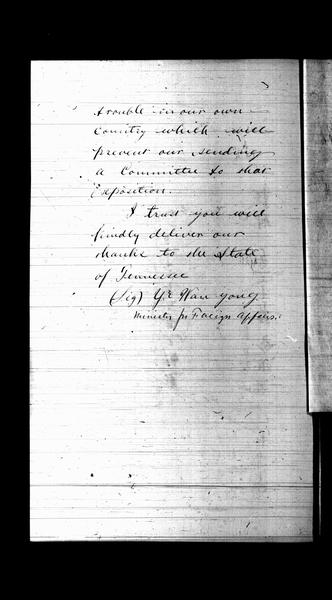 trouble in our own
Country which will
prevent our sending
a Committee to that
Exposition.
I trust you will
kindly deliver our
thanks to the State
of Tennessee
(Sig) Ye Wan yong
Minister for Foreign Affairs.